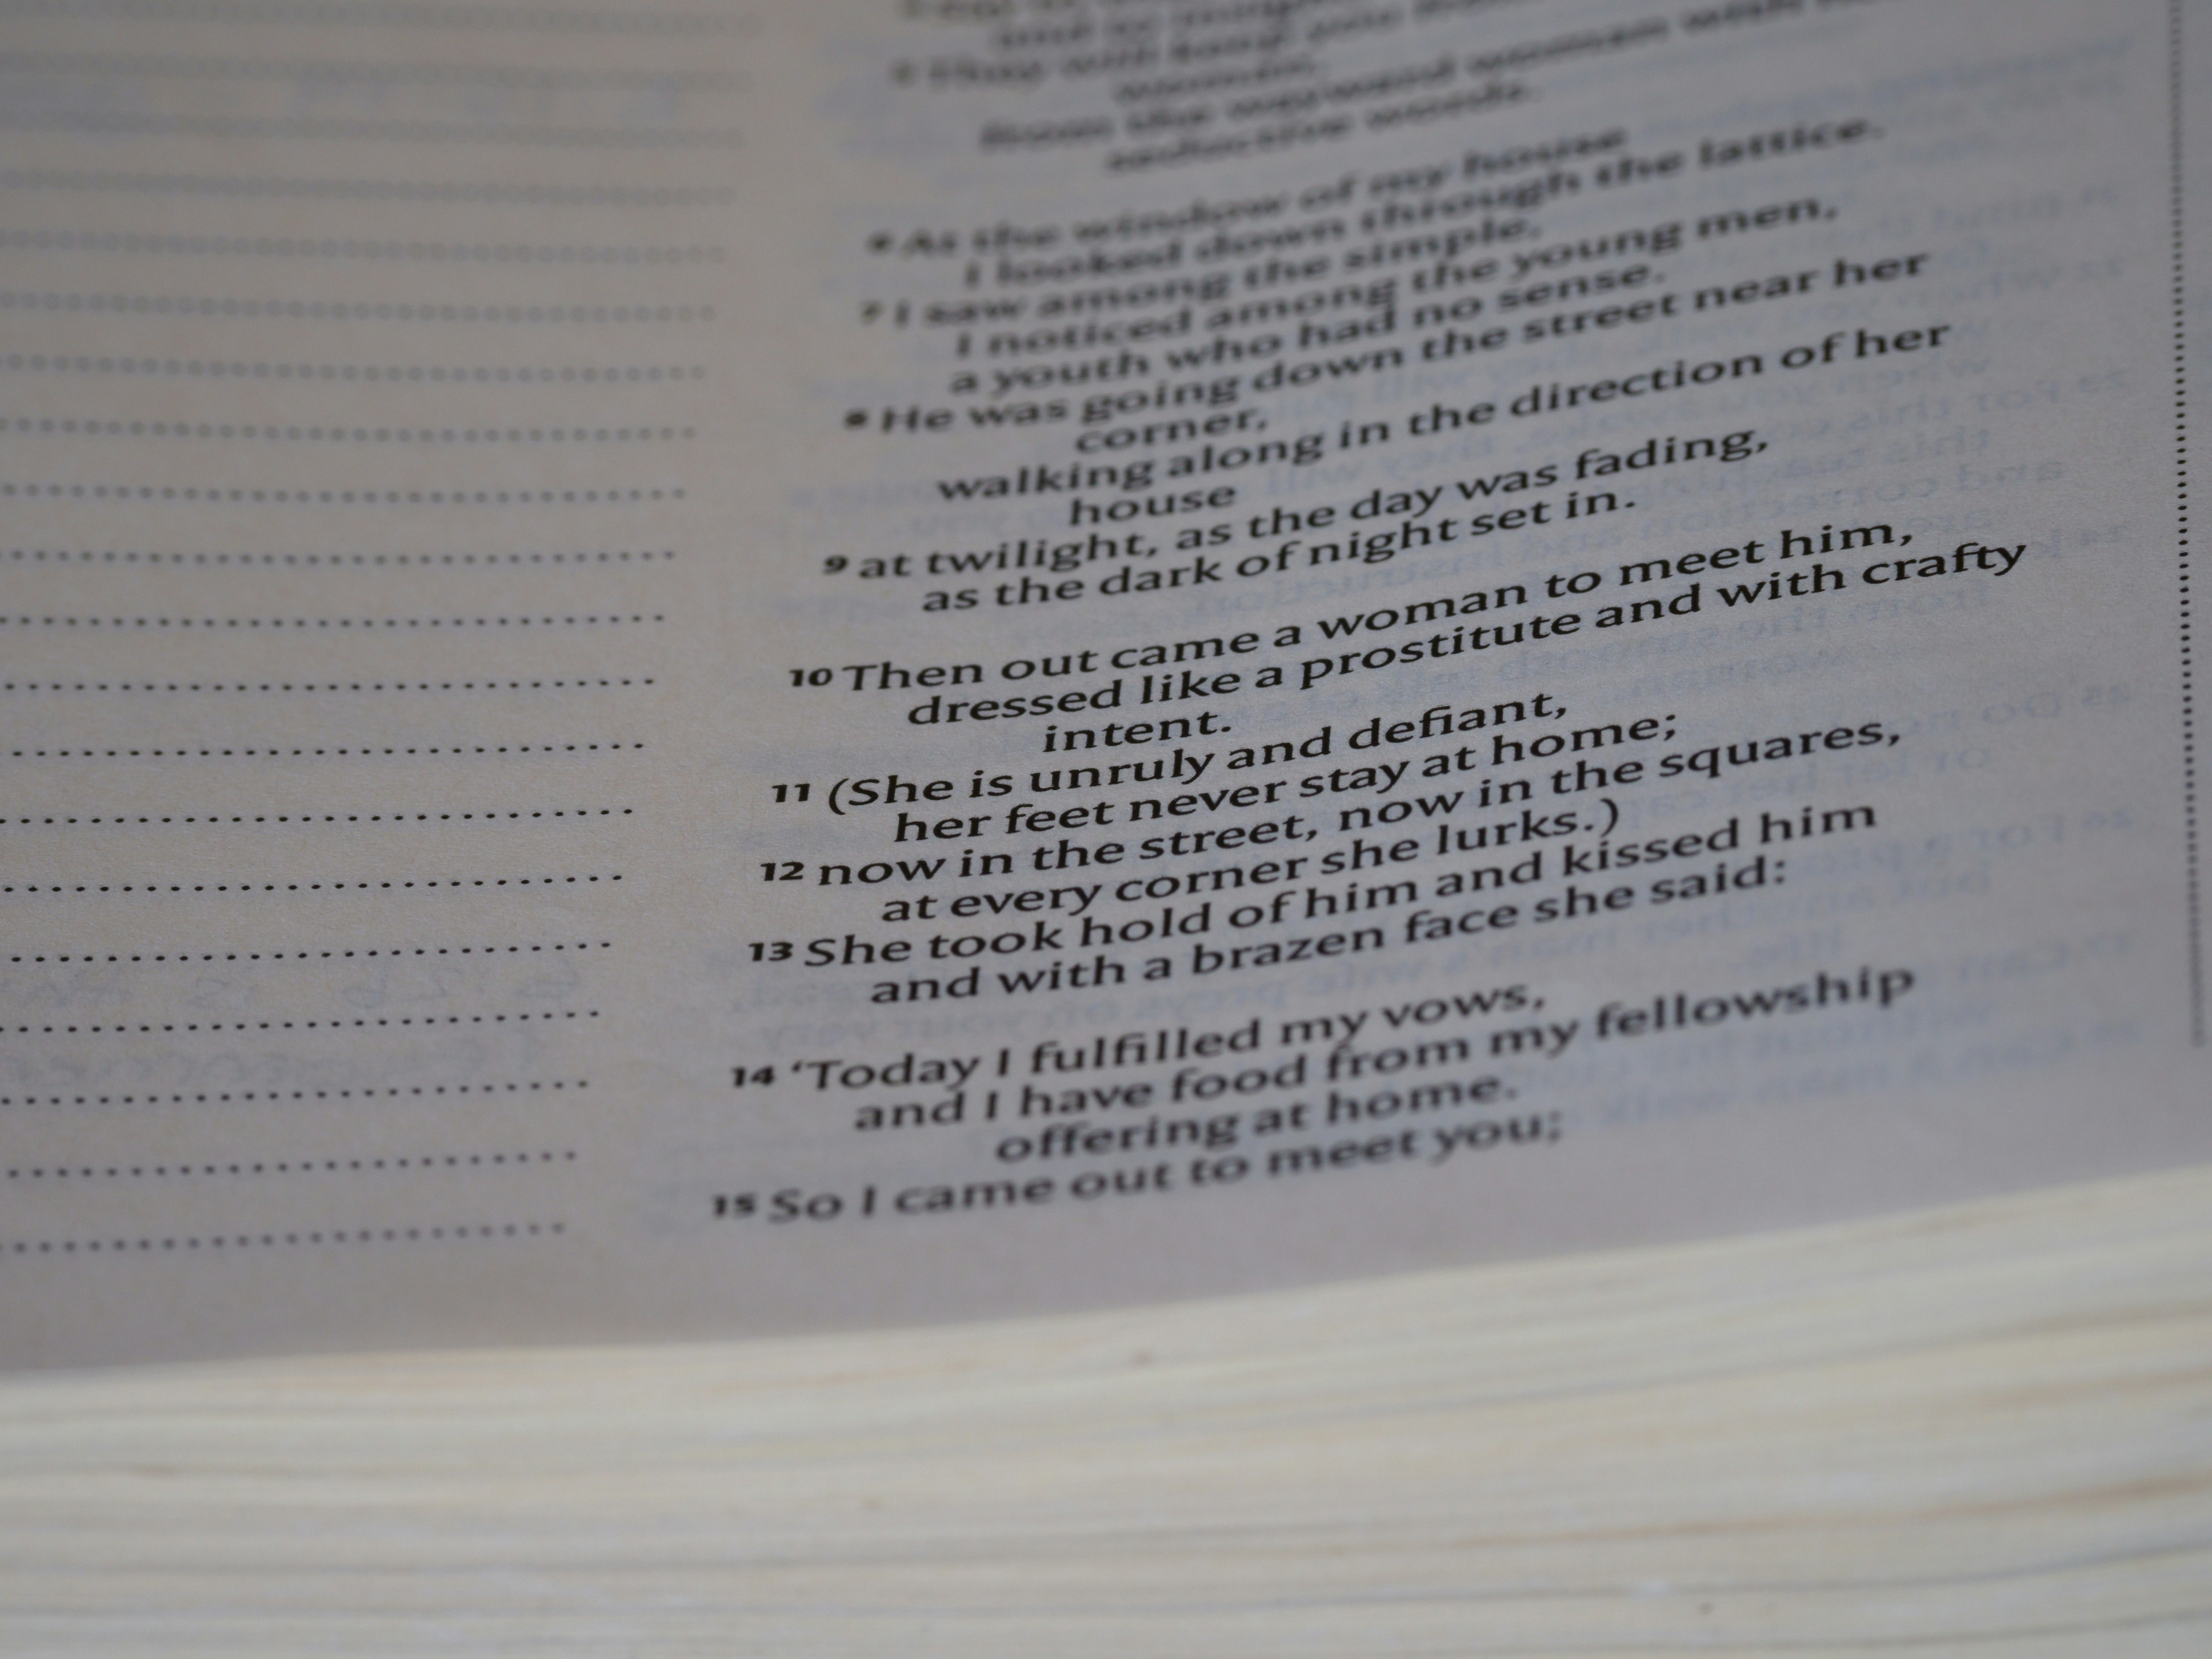 5 They will keep you
woman,
from the wayward woman with
seductive words.
6 At the window of my house
I looked down through the lattice.
7 I saw among the simple,
I noticed among the young men,
a youth who had no sense.
8 He was going down the street near her
corner,
walking along in the direction of her
house
9 at twilight, as the day was fading,
as the dark of night set in.
10 Then out came a woman to meet him,
dressed like a prostitute and with crafty
intent.
11 (She is unruly and defiant,
her feet never stay at home;
12 now in the street, now in the squares,
at every corner she lurks.)
13 She took hold of him and kissed him
and with a brazen face she said:
14 ‘Today I fulfilled my vows,
and I have food from my fellowship
offering at home.
15 So I came out to meet you;